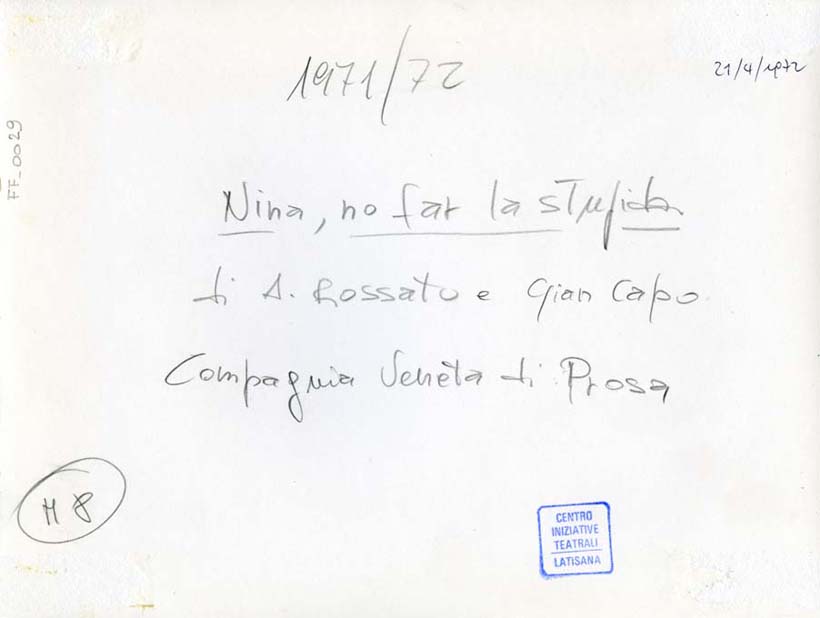 1971/72
21/4/1972
FF_0029
Nina, no far la stupida
di A. Rossato e Gian Capo
Compagnia Veneta di Prosa
M 8
CENTRO
INIZIATIVE
TEATRALI
LATISANA